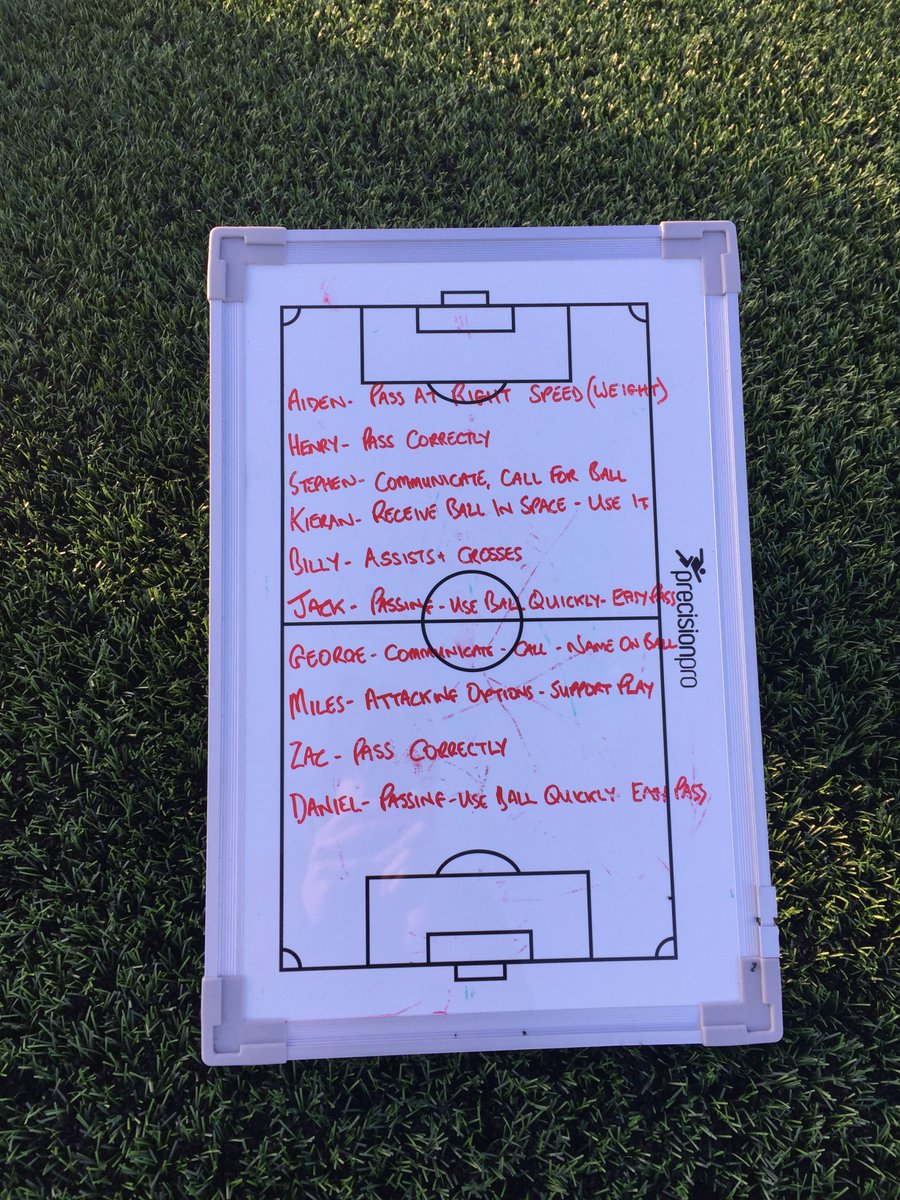 AIDEN- PASS AT RIGHT SPEED (WEIGHT)
HENRY- PASS CORRECTLY
STEPHEN- COMMUNICATE, CALL FOR BALL
KIERAN- RECEIVE BALL IN SPACE - USE IT
BILLY- ASSISTS + CROSSES
JACK- PASSING - USE BALL QUICKLY- EASY PASS
GEORGE- COMMUNICATE - CALL - NAME ON BALL
MILES- ATTACKING OPTIONS - SUPPORT PLAY
ZAC- PASS CORRECTLY
DANIEL- PASSING-USE BALL QUICKLY EASY PASS
precisionpro